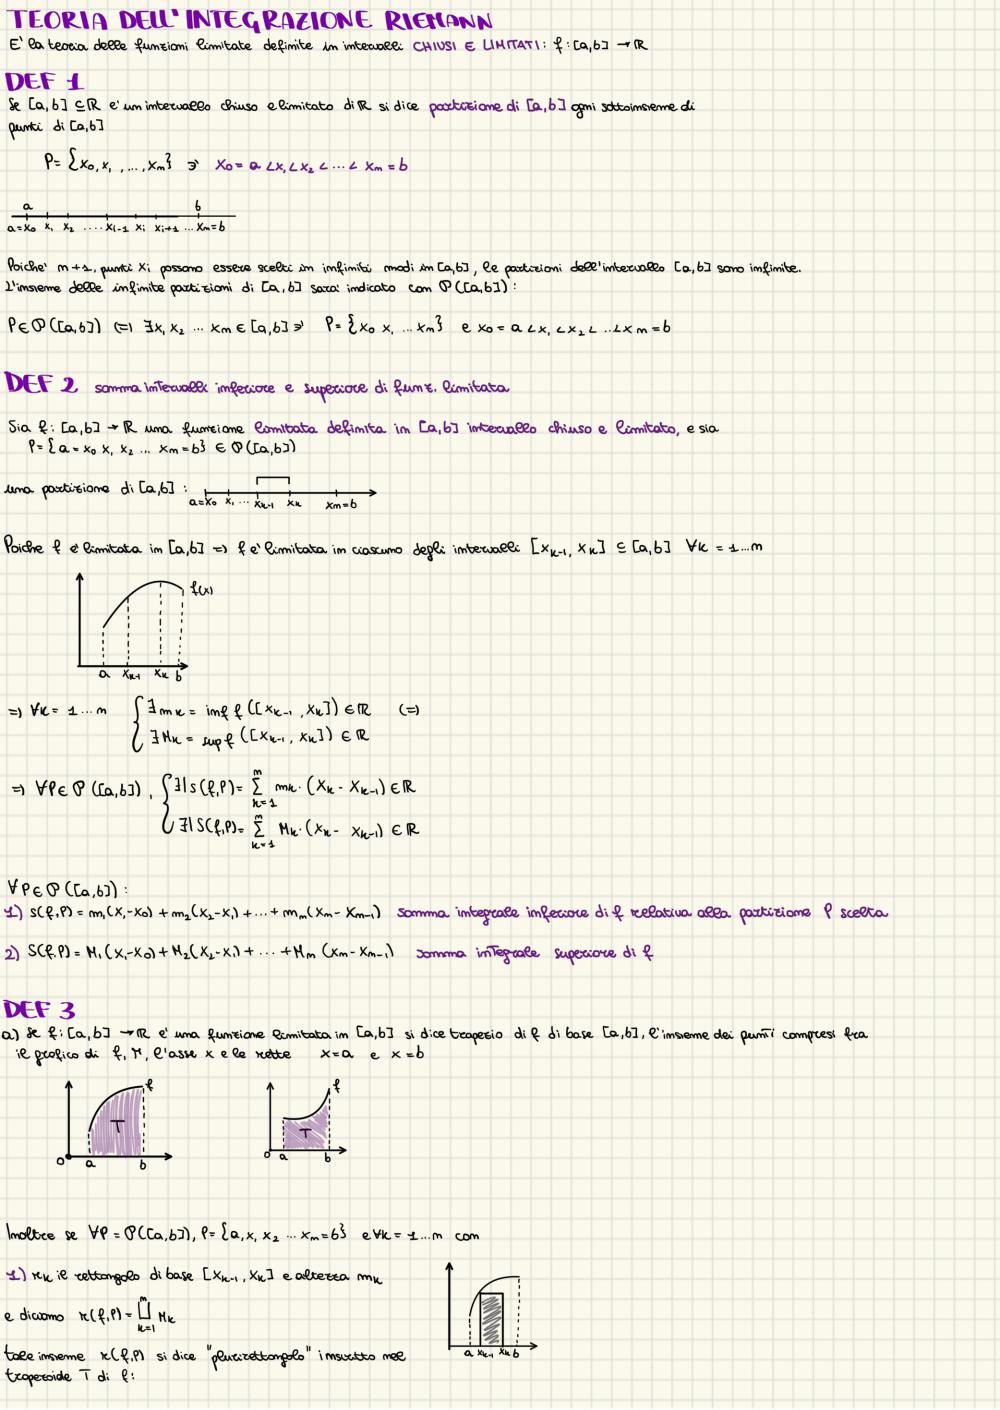 TEORIA DELL'INTEGRAZIONE RIEMANN
E' la teoria delle funzioni limitate definite in intervalli CHIUSI E LIMITATI: f:[a,b] → ℝ
DEF 1
Se [a,b] ⊆ ℝ e' un intervallo chiuso e limitato di ℝ si dice partizione di [a,b] ogni sottoinsieme di
punti di [a,b]
P= {x₀,x₁ ,...,xₙ} ∋' x₀ = a < x₁ < x₂ < ... < xₙ = b
a b
a=x₀ x₁ x₂ .... xᵢ₋₁ xᵢ xᵢ₊₁ ... xₙ=b
Poiche' n+1, punti xᵢ possono essere scelti in infiniti modi in [a,b], le partizioni dell'intervallo [a,b] sono infinite.
L'insieme delle infinite partizioni di [a,b] sara' indicato con 𝒫([a,b]):
P∈𝒫([a,b]) (=) ∃x₁ x₂ ... xₙ ∈ [a,b] ∋' P= {x₀ x₁ ... xₙ} e x₀ = a < x₁ < x₂ < ... < xₙ = b
DEF 2 somma intervalli inferiore e superiore di funz. limitata
Sia f: [a,b] → ℝ una funzione limitata definita in [a,b] intervallo chiuso e limitato, e sia
P= {a = x₀ x₁ x₂ ... xₙ = b} ∈ 𝒫([a,b])
una partizione di [a,b] :
a=x₀ x₁ ... xₖ₋₁ xₖ xₙ=b
Poiche f e' limitata in [a,b] =) f e' limitata in ciascuno degli intervalli [xₖ₋₁, xₖ] ⊆ [a,b] ∀k = 1...n
f(x)
a xₖ₋₁ xₖ b
=) ∀k = 1...n { ∃mₖ = inf f ([xₖ₋₁ , xₖ]) ∈ ℝ (=)
∃Mₖ = sup f ([xₖ₋₁, xₖ]) ∈ ℝ
=) ∀P∈ 𝒫([a,b]) , { ∃| s(f,P)= Σₖ₌₁ⁿ mₖ · (xₖ - xₖ₋₁) ∈ ℝ
∃| S(f,P)= Σₖ₌₁ⁿ Mₖ · (xₖ - xₖ₋₁) ∈ ℝ
∀P∈𝒫([a,b]) :
1) s(f,P) = m₁(x₁-x₀) + m₂(x₂-x₁) + ... + mₙ(xₙ - xₙ₋₁) somma integrale inferiore di f relativa alla partizione P scelta
2) S(f,P) = M₁(x₁-x₀) + M₂(x₂-x₁) + ... + Mₙ (xₙ - xₙ₋₁) somma integrale superiore di f
DEF 3
a) Se f: [a,b] → ℝ e' una funzione limitata in [a,b] si dice trapezio di f di base [a,b], l'insieme dei punti compresi fra
il grafico di f, l'asse x e le rette x=a e x=b
f T 0 a b
f T 0 a b
Inoltre se ∀P = 𝒫([a,b]), P= {a,x₁ x₂ ... xₙ=b} e ∀k = 1...n con
1) rₖ il rettangolo di base [xₖ₋₁, xₖ] e altezza mₖ
e diciamo r(f,P) = ∐ₖ₌₁ⁿ Mₖ
tale insieme r(f,P) si dice "plurirettangolo" inscritto nel
trapezoide T di f:
a xₖ₋₁ xₖ b